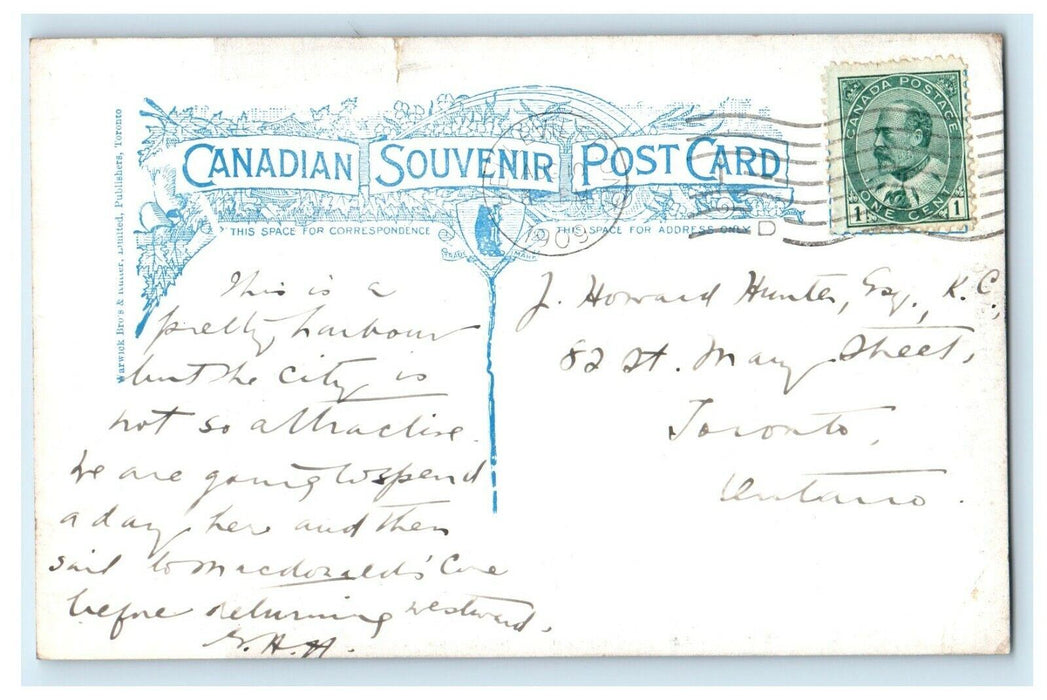 CANADIAN SOUVENIR POST CARD
THIS SPACE FOR CORRESPONDENCE
THIS SPACE FOR ADDRESS ONLY
TRADE MARK
Warwick Bro's & Rutter, Limited, Publishers, Toronto
CANADA POSTAGE
1 ONE CENT 1
1909
D
This is a
pretty harbour
but the city is
not so attractive.
We are going to spend
a day here and then
sail to Macdonald's Cove
before returning westward.
J. Howard Hunter, Esq., K.C.,
82 St. Mary Street,
Toronto,
Ontario.